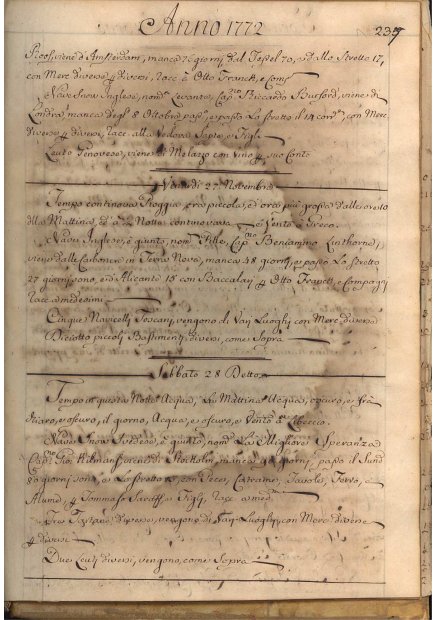 Anno 1772
237
viene d'Amsterdam, manca 26 giorni, dal Tessel 20, e dallo Stretto 17,
con Merc. diverse p diversi, racc. a Otto Franck, e Comp.
Nave Snow Inglese, nom. Levante, Cap. Riccardo Burford, viene di
Londra, manca degl' 8 Ottobre pass. e passò lo stretto il 14 cor., con Merc.
diverse p diversi, racc. alla Vedova e Figli
Leuto Genovese, viene di Melazzo con vino p suo conto
Venerdì 27. Novembre
Tempo continova Pioggia, ora piccola, ed ora più grossa dall'
della Mattina, e la Notte continovava e Vento a Greco.
Nave Inglese, è giunta, nom. Cap. Beniamino
viene dalle in Terra Nova, manca 48 giorni, e passò lo stretto
27 giorni sono, e d'Alicante 15 con Baccalari p Otto Franck, e Compagni
racc. a medesimi
Cinque Navicelli Toscani, vengono di Varj Luoghi con Merc. diverse
Diciotto piccoli Bastimenti diversi, come Sopra
Sabbato 28 Detto
Tempo in questa Notte Acqua, la Mattina Acqua, oscuro, e
chiaro, e oscuro, il giorno, Acqua, e oscuro, e Vento a Libeccio.
Nave Snow Svedese, è giunta, nom. La Migliore Speranza
Cap. Gio. viene di Stockolm, manca giorni, passò il Sund
giorni sono, e lo stretto con Pece, Catrame, Tavole, Ferro, e
Alume, p Tommaso e Figli, racc. a med.
Tre Tartane diverse, vengono di Varj Luoghi, con Merc. diverse
p diversi
Due Leuti diversi, vengono, come Sopra